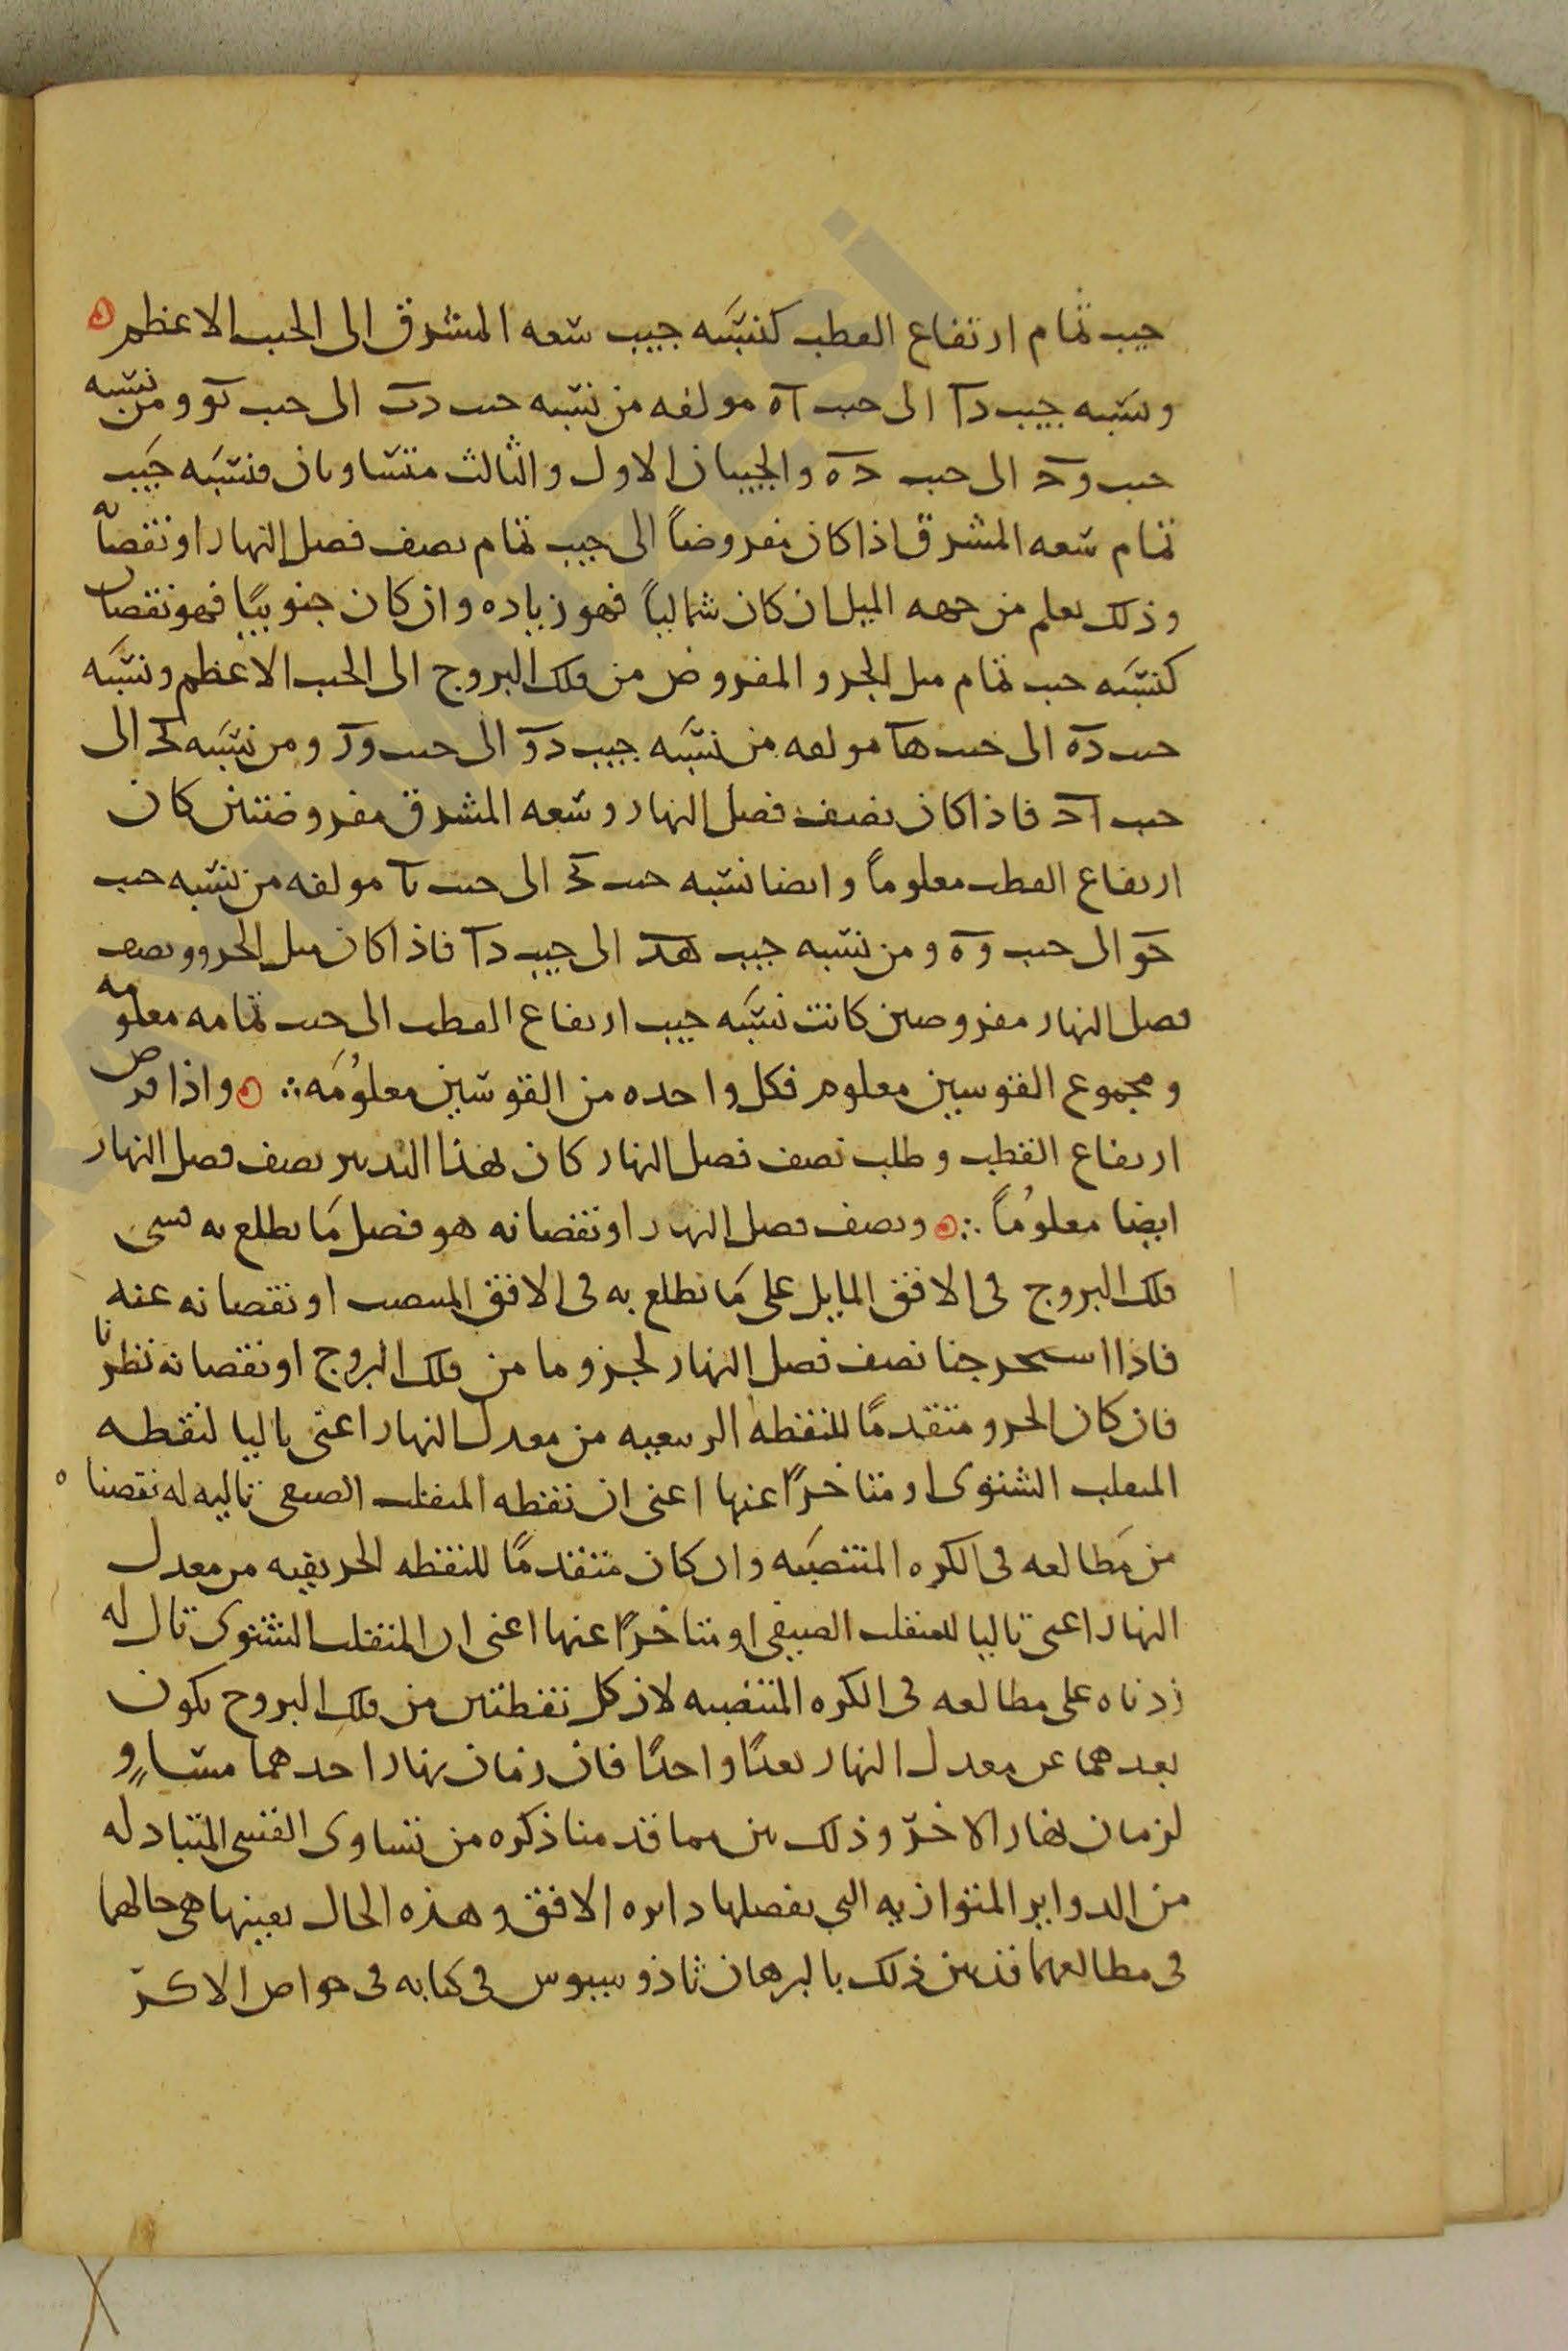 جيب تمام ارتفاع القطب كنسبه جيب سعه المشرق الى الجيب الاعظم
ونسبه جيب دآ الى جيب آه مولفه من نسبه جيب دب الى جيب بو ومن نسبه
جيب وح الى جيب حه والجيبان الاول والثالث متساويان فنسبه جيب
تمام سعه المشرق اذا كان مفروضاً الى جيب تمام نصف فضل النهار او نقصانه
وذلك يعلم من جهه الميل ان كان شمالياً فهو زياده وان كان جنوبيًا فهو نقصان
كنسبه جيب تمام ميل الجزو المفروض من فلك البروج الى الجيب الاعظم ونسبه
جيب ده الى جيب هآ مولفه من نسبه جيب دو الى جيب ور ومن نسبه الى
جيب آح فاذا كان نصف فضل النهار وسعه المشرق مفروضتين كان
ارتفاع القطب معلوماً وايضا نسبه جيب الى جيب بآ مولفه من نسبه جيب
حو الى جيب وه ومن نسبه جيب هد الى جيب دآ فاذا كان ميل الجزو ونصف
فضل النهار مفروضين كانت نسبه جيب ارتفاع القطب الى جيب تمامه معلومه
ومجموع القوسين معلوم فكل واحده من القوسين معلومه ∴ واذا فرض
ارتفاع القطب وطلب نصف فضل النهار كان بهذا التدبير نصف فضل النهار
ايضا معلوماً ∴ ونصف فضل النهار او نقصانه هو فضل ما يطلع به قسى
فلك البروج فى الافق المايل على ما تطلع به فى الافق المنتصب او نقصانه عنه
فاذا استخرجنا نصف فضل النهار لجزو ما من فلك البروج او نقصانه نظرنا
فان كان الجزو متقدمًا للنقطه الربيعيه من معدل النهار اعنى تاليا لنقطه
المنقلب الشتوى او متاخرًا عنها اعنى ان نقطه المنقلب الصيفى تاليه له نقصنا ه
من مطالعه فى الكره المنتصبه وان كان متقدمًا للنقطه الخريفيه من معدل
النهار اعنى تاليا للمنقلب الصيفى او متاخرًا عنها اعنى ان المنقلب الشتوى تال له
زدناه على مطالعه فى الكره المنتصبه لان كل نقطتين من فلك البروج يكون
بعدهما عن معدل النهار بعدًا واحدًا فان زمان نهار احدهما مساوٍ
لزمان نهار الاخر وذلك بين مما قدمنا ذكره من تساوى القسى المتبادله
من الدواير المتوازيه التى يفصلها دايره الافق وهذه الحال بعينها هى حالهما
فى مطالعهما قد بين ذلك بالبرهان ثاذوسيوس فى كتابه فى خواص الاكر